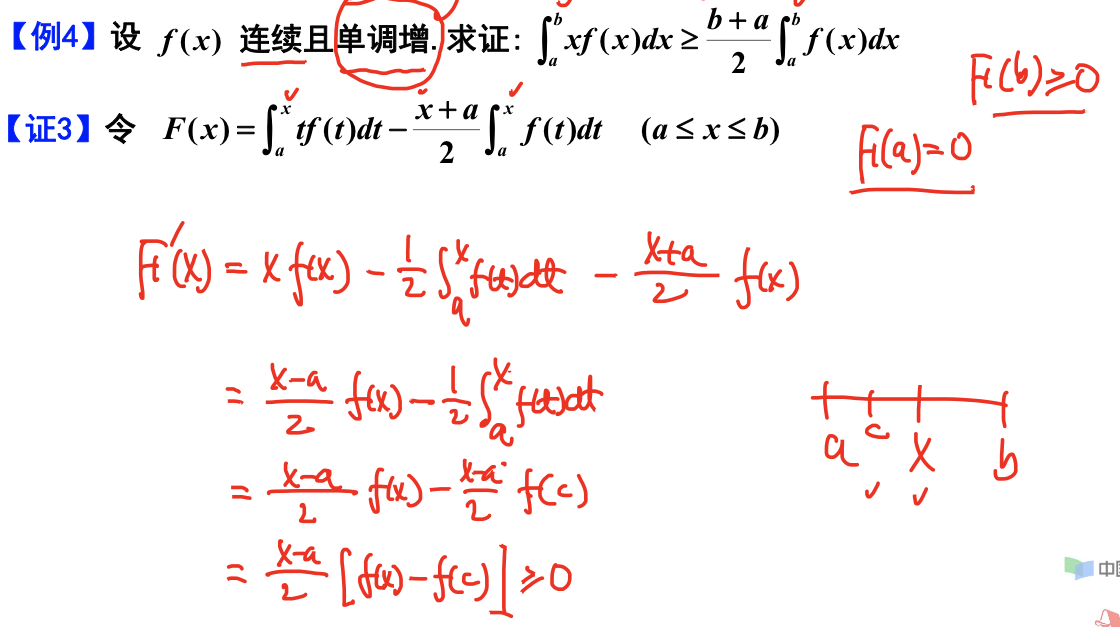 【例4】设 f(x) 连续且单调增.求证: ∫_a^b xf(x)dx ≥ (b+a)/2 ∫_a^b f(x)dx
F(b)≥0
【证3】令 F(x)=∫_a^x tf(t)dt − (x+a)/2 ∫_a^x f(t)dt (a≤x≤b)
F(a)=0
F'(x) = x f(x) − 1/2 ∫_a^x f(t)dt − (x+a)/2 f(x)
= (x−a)/2 f(x) − 1/2 ∫_a^x f(t)dt
a c x b
= (x−a)/2 f(x) − (x−a)/2 f(c)
= (x−a)/2 [f(x)−f(c)] ≥0
中